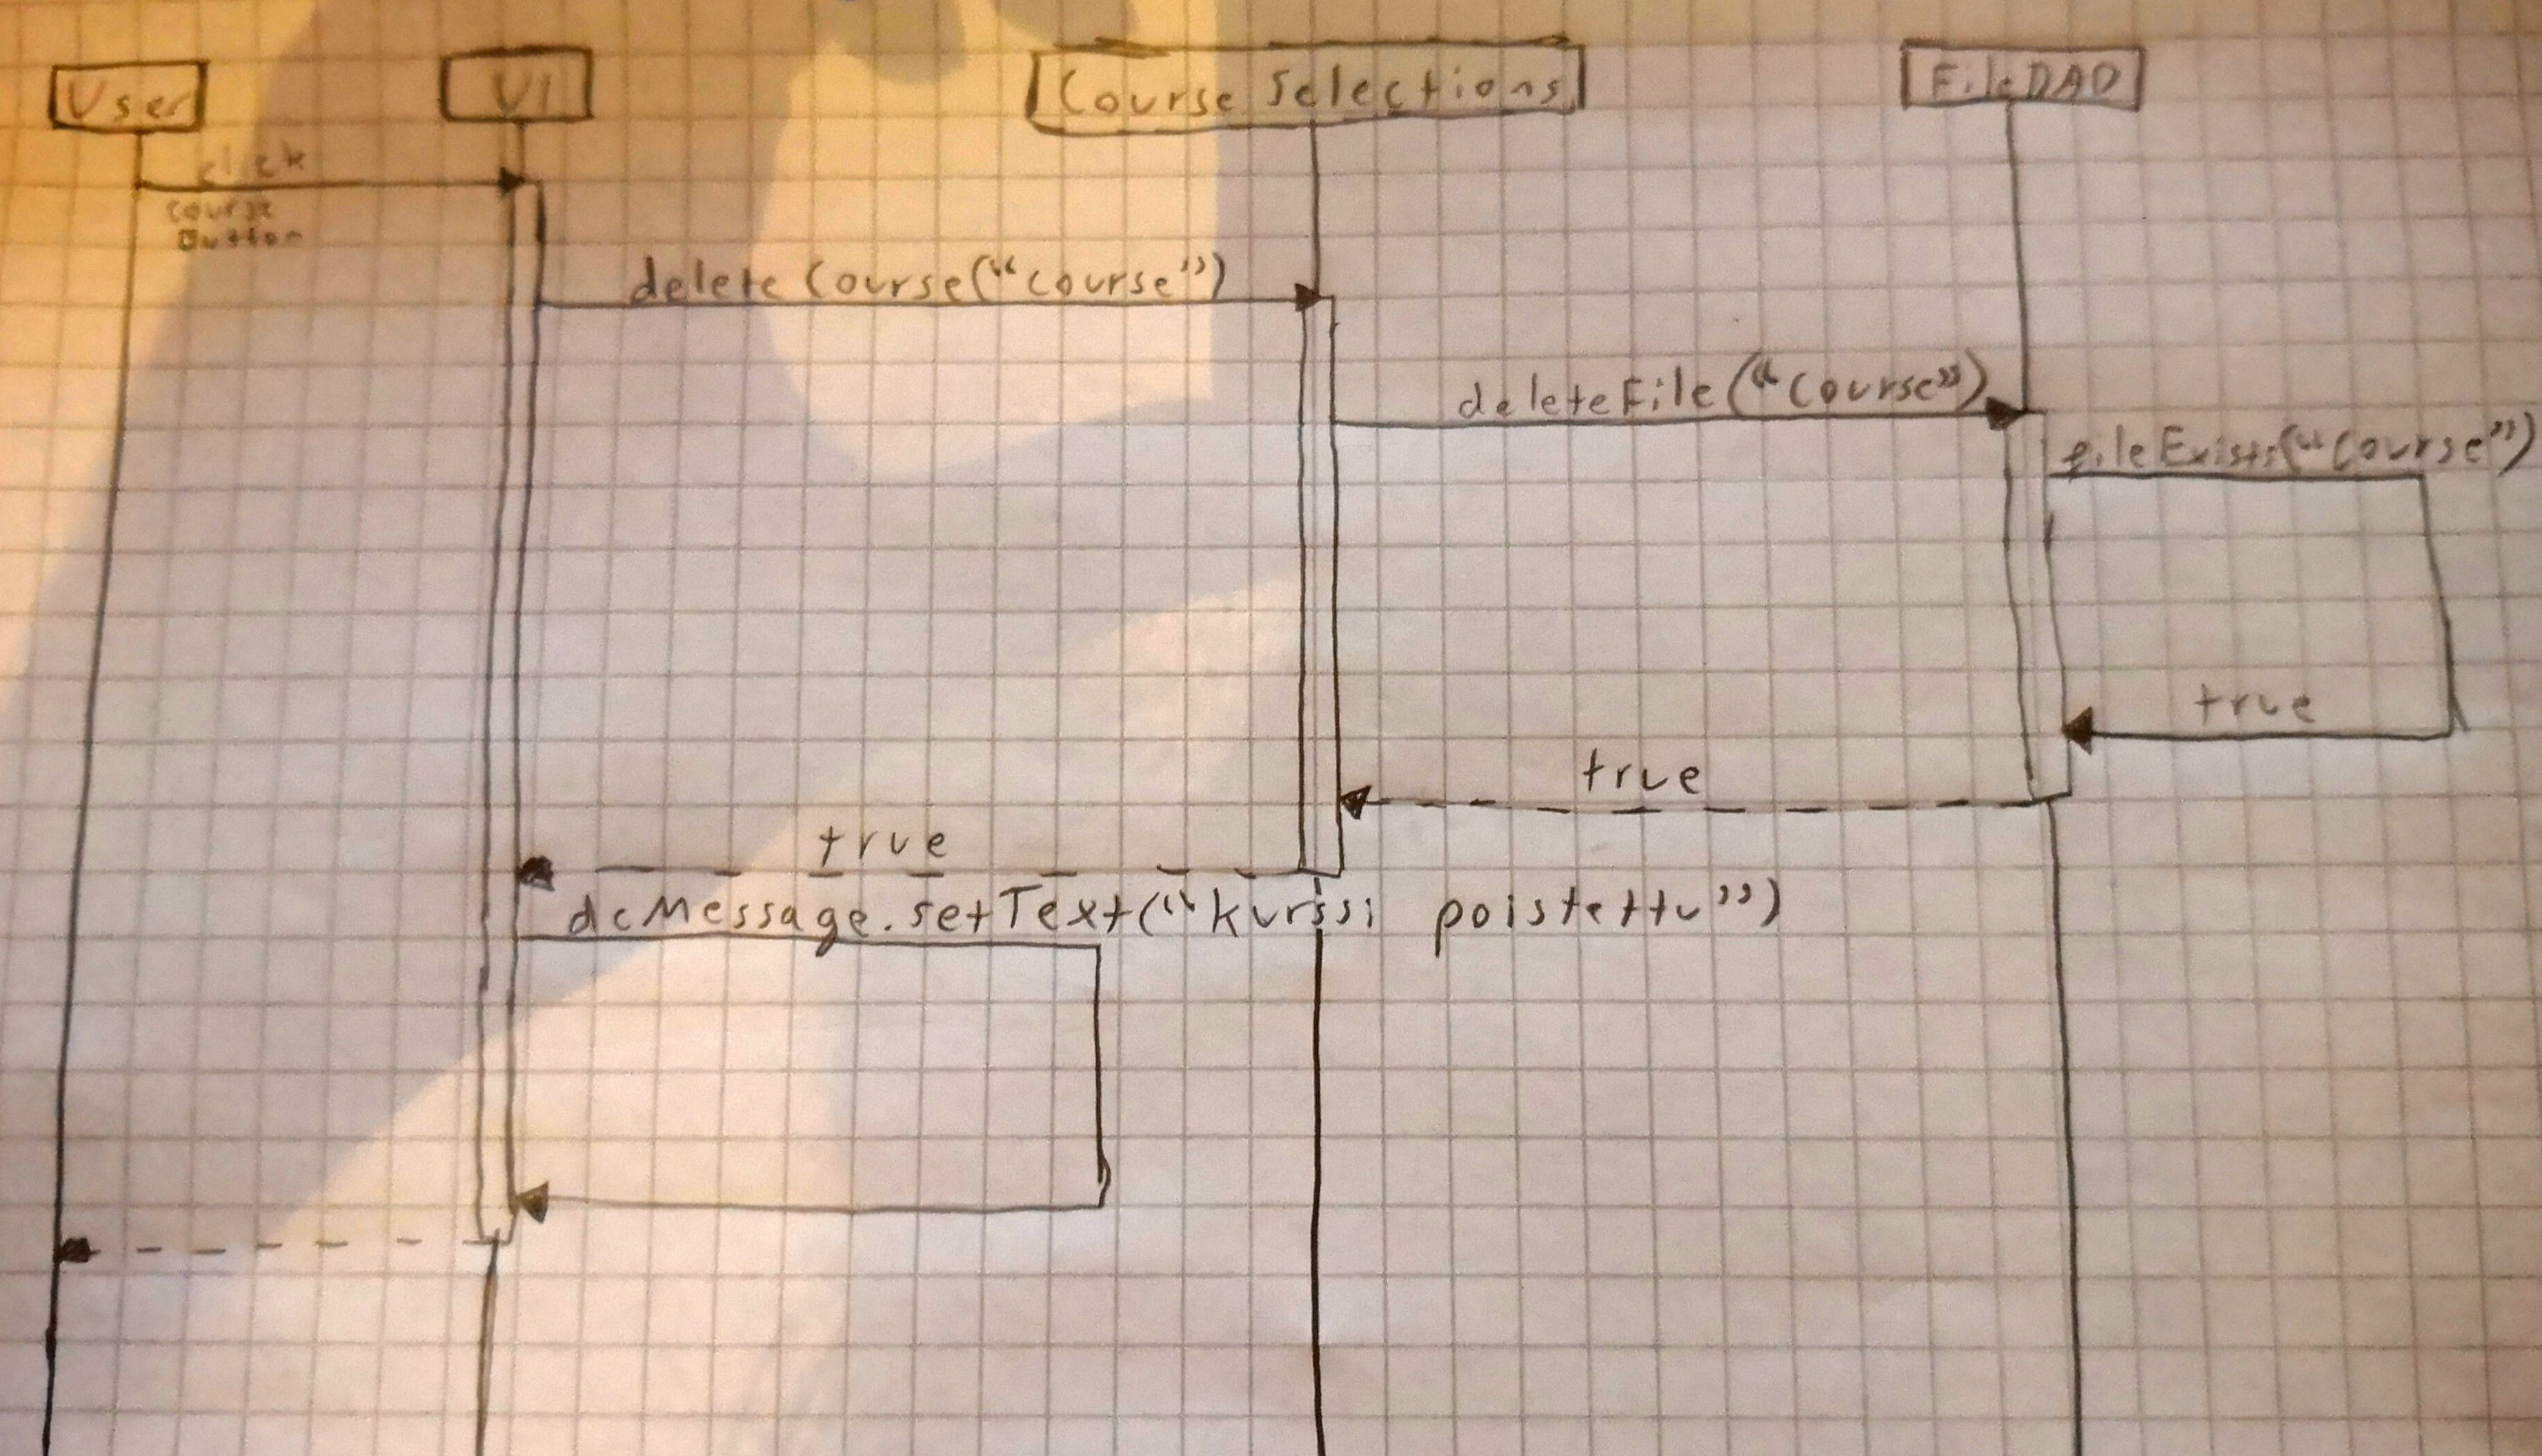 User
UI
Course Selections
FileDAO
click
course
Button
deleteCourse("course")
deleteFile("Course")
fileExists("Course")
true
true
true
dcMessage.setText("kurssi poistettu")